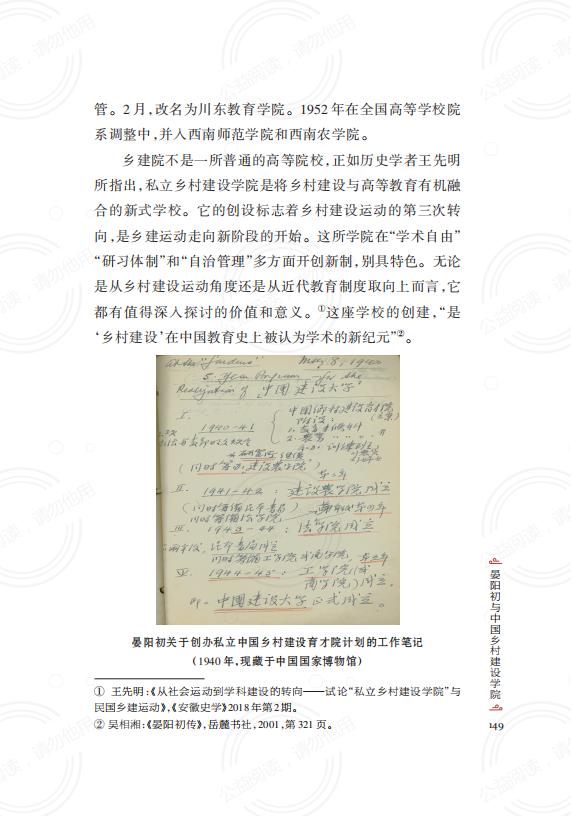 管。2月,改名为川东教育学院。1952年在全国高等学校院
系调整中,并入西南师范学院和西南农学院。
乡建院不是一所普通的高等院校,正如历史学者王先明
所指出,私立乡村建设学院是将乡村建设与高等教育有机融
合的新式学校。它的创设标志着乡村建设运动的第三次转
向,是乡建运动走向新阶段的开始。这所学院在“学术自由”
“研习体制”和“自治管理”多方面开创新制,别具特色。无论
是从乡村建设运动角度还是从近代教育制度取向上而言,它
都有值得深入探讨的价值和意义。①这座学校的创建,“是
‘乡村建设’在中国教育史上被认为学术的新纪元”②。
At the "Gardens" May 8, 1940
5-Year Program for the
Realization of 中國建设大学
I. 1940-41
II. 1941-42: 建設農学院成立
III. 1943-44: 法学院成立
1944-45: 工学院(或
商学院)成立。
中國建设大学正式成立。
晏阳初关于创办私立中国乡村建设育才院计划的工作笔记
(1940年,现藏于中国国家博物馆)
① 王先明:《从社会运动到学科建设的转向——试论“私立乡村建设学院”与
民国乡建运动》,《安徽史学》2018年第2期。
② 吴相湘:《晏阳初传》,岳麓书社,2001,第321页。
晏阳初与中国乡村建设学院
149
公益阅读,请勿他用